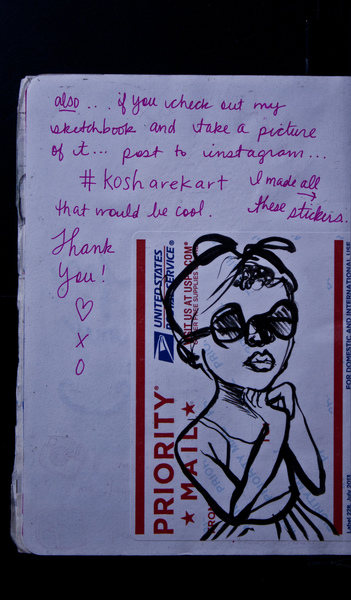 also... if you check out my
sketchbook and take a picture
of it... post to instagram...
#kosharekart
I made all
these stickers.
that would be cool.
Thank
You!
X
O
UNITED STATES
POSTAL SERVICE®
VISIT US AT USPS.COM®
PRIORITY
★ MAIL ★
FOR DOMESTIC AND INTERNATIONAL USE
Label 228, July 2013